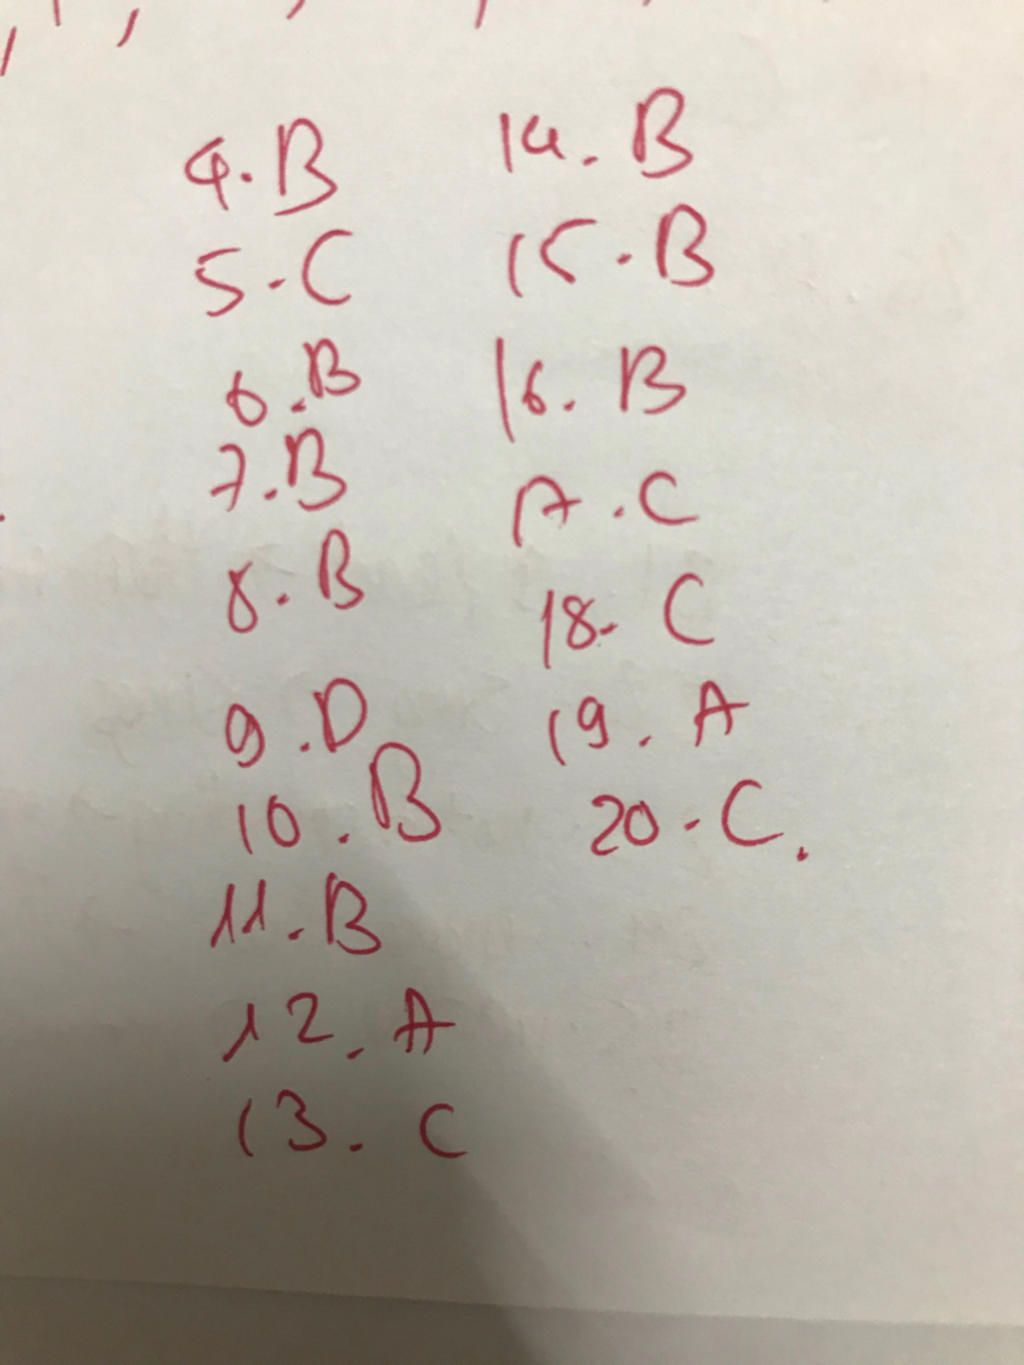 4. B
5. C
6. B
7. B
8. B
9. D
10. B
11. B
12. A
13. C
14. B
15. B
16. B
17. C
18. C
19. A
20. C.